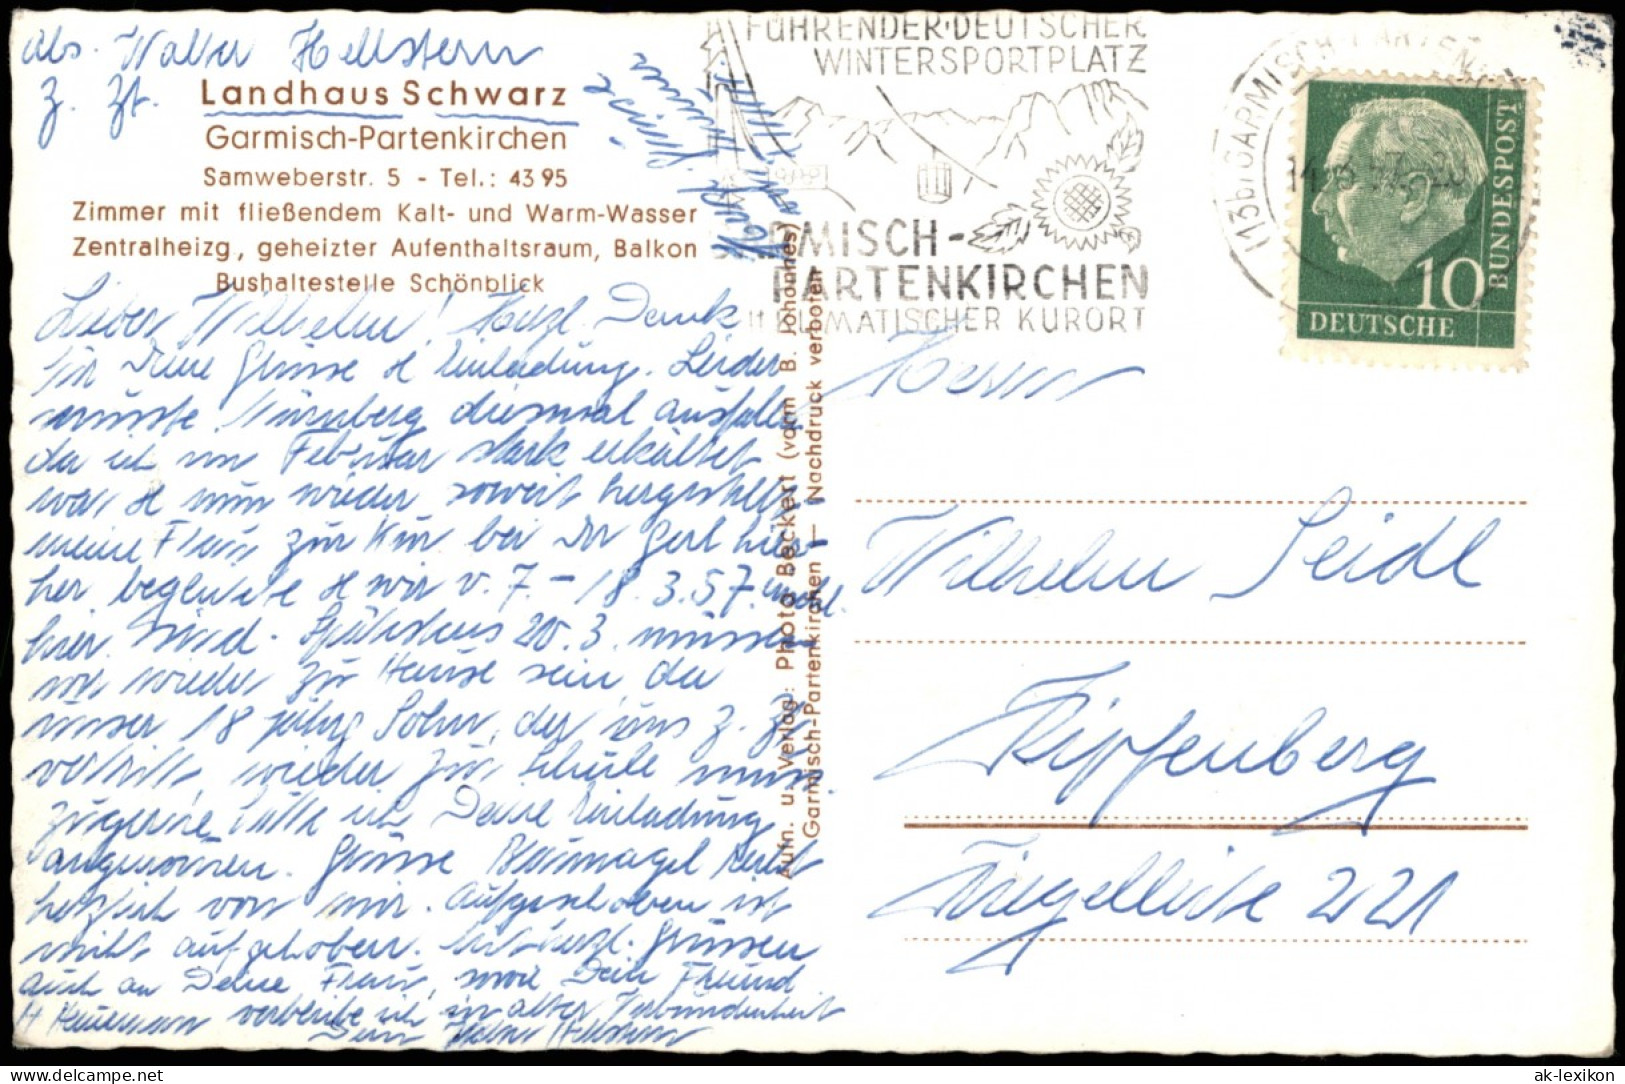 Abs. Walter Hellstern
z. Zt.
Landhaus Schwarz
Garmisch-Partenkirchen
Samweberstr. 5 - Tel.: 43 95
Zimmer mit fließendem Kalt- und Warm-Wasser
Zentralheizg, geheizter Aufenthaltsraum, Balkon
Bushaltestelle Schönblick
Lieber Wilhelm! Herzl. Dank
für Deine Grüsse & Einladung. Leider
musste Nürnberg diesmal ausfallen
da ich im Februar stark erkältet
war & nun wieder soweit hergestellt
meine Frau zur Kur bei Dr Gerl hier-
her begleitete & wir v. 7 - 18.3.57.
hier sind. Spätestens 20.3. müssen
wir wieder zu Hause sein, da
unser 18 jährg Sohn, der uns z. Zt.
vertritt, wieder zur Schule muss.
Zu gerne hätte ich Deine Einladung
angenommen. Grüsse Baumnagel recht
herzlich von mir. Aufgeschoben ist
nicht aufgehoben. Mit herzl. Grüssen
auch an Deine Frau, sowie Dein Freund
verbleibe ich in alter Verbundenheit
Dein Walter Hellstern
FÜHRENDER DEUTSCHER
WINTERSPORTPLATZ
GARMISCH-
PARTENKIRCHEN
HEILKLIMATISCHER KURORT
(13b) GARMISCH-PARTENK
BUNDESPOST
10
DEUTSCHE
Aufn. u. Verlag: Photo Beckert (vorm B. Johannes)
Garmisch-Partenkirchen — Nachdruck verboten
Herrn
Wilhelm Seidl
Kipfenberg
221
ak-lexikon